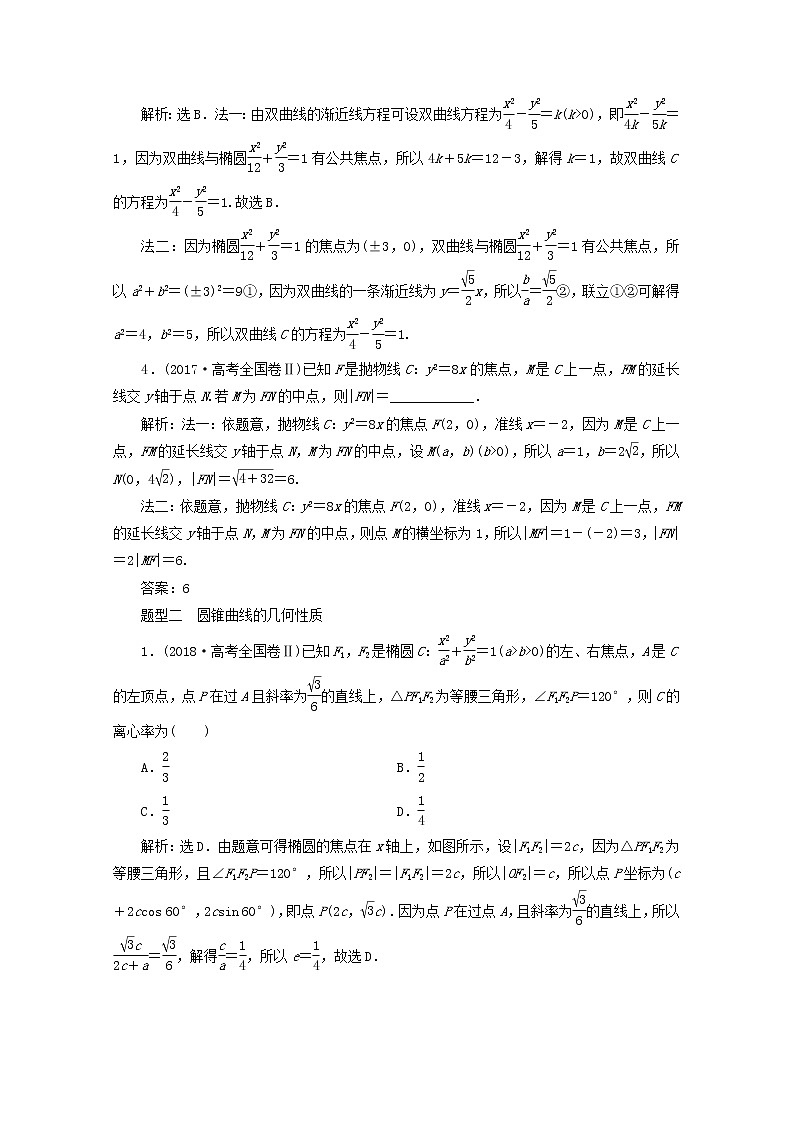 解析:选B.法一:由双曲线的渐近线方程可设双曲线方程为x²/4-y²/5=k(k>0),即x²/4k-y²/5k=
1,因为双曲线与椭圆x²/12+y²/3=1有公共焦点,所以4k+5k=12-3,解得k=1,故双曲线C
的方程为x²/4-y²/5=1.故选B.
法二:因为椭圆x²/12+y²/3=1的焦点为(±3,0),双曲线与椭圆x²/12+y²/3=1有公共焦点,所
以a²+b²=(±3)²=9①,因为双曲线的一条渐近线为y=√5/2x,所以b/a=√5/2②,联立①②可解得
a²=4,b²=5,所以双曲线C的方程为x²/4-y²/5=1.
4.(2017·高考全国卷Ⅱ)已知F是抛物线C:y²=8x的焦点,M是C上一点,FM的延长
线交y轴于点N.若M为FN的中点,则|FN|=____________.
解析:法一:依题意,抛物线C:y²=8x的焦点F(2,0),准线x=-2,因为M是C上一
点,FM的延长线交y轴于点N,M为FN的中点,设M(a,b)(b>0),所以a=1,b=2√2,所以
N(0,4√2),|FN|=√(4+32)=6.
法二:依题意,抛物线C:y²=8x的焦点F(2,0),准线x=-2,因为M是C上一点,FM
的延长线交y轴于点N,M为FN的中点,则点M的横坐标为1,所以|MF|=1-(-2)=3,|FN|
=2|MF|=6.
答案:6
题型二 圆锥曲线的几何性质
1.(2018·高考全国卷Ⅱ)已知F₁,F₂是椭圆C:x²/a²+y²/b²=1(a>b>0)的左、右焦点,A是C
的左顶点,点P在过A且斜率为√3/6的直线上,△PF₁F₂为等腰三角形,∠F₁F₂P=120°,则C的
离心率为( )
A.2/3 B.1/2
C.1/3 D.1/4
解析:选D.由题意可得椭圆的焦点在x轴上,如图所示,设|F₁F₂|=2c,因为△PF₁F₂为
等腰三角形,且∠F₁F₂P=120°,所以|PF₂|=|F₁F₂|=2c,所以|OF₂|=c,所以点P坐标为(c
+2ccos 60°,2csin 60°),即点P(2c,√3c).因为点P在过点A,且斜率为√3/6的直线上,所以
√3c/(2c+a)=√3/6,解得c/a=1/4,所以e=1/4,故选D.